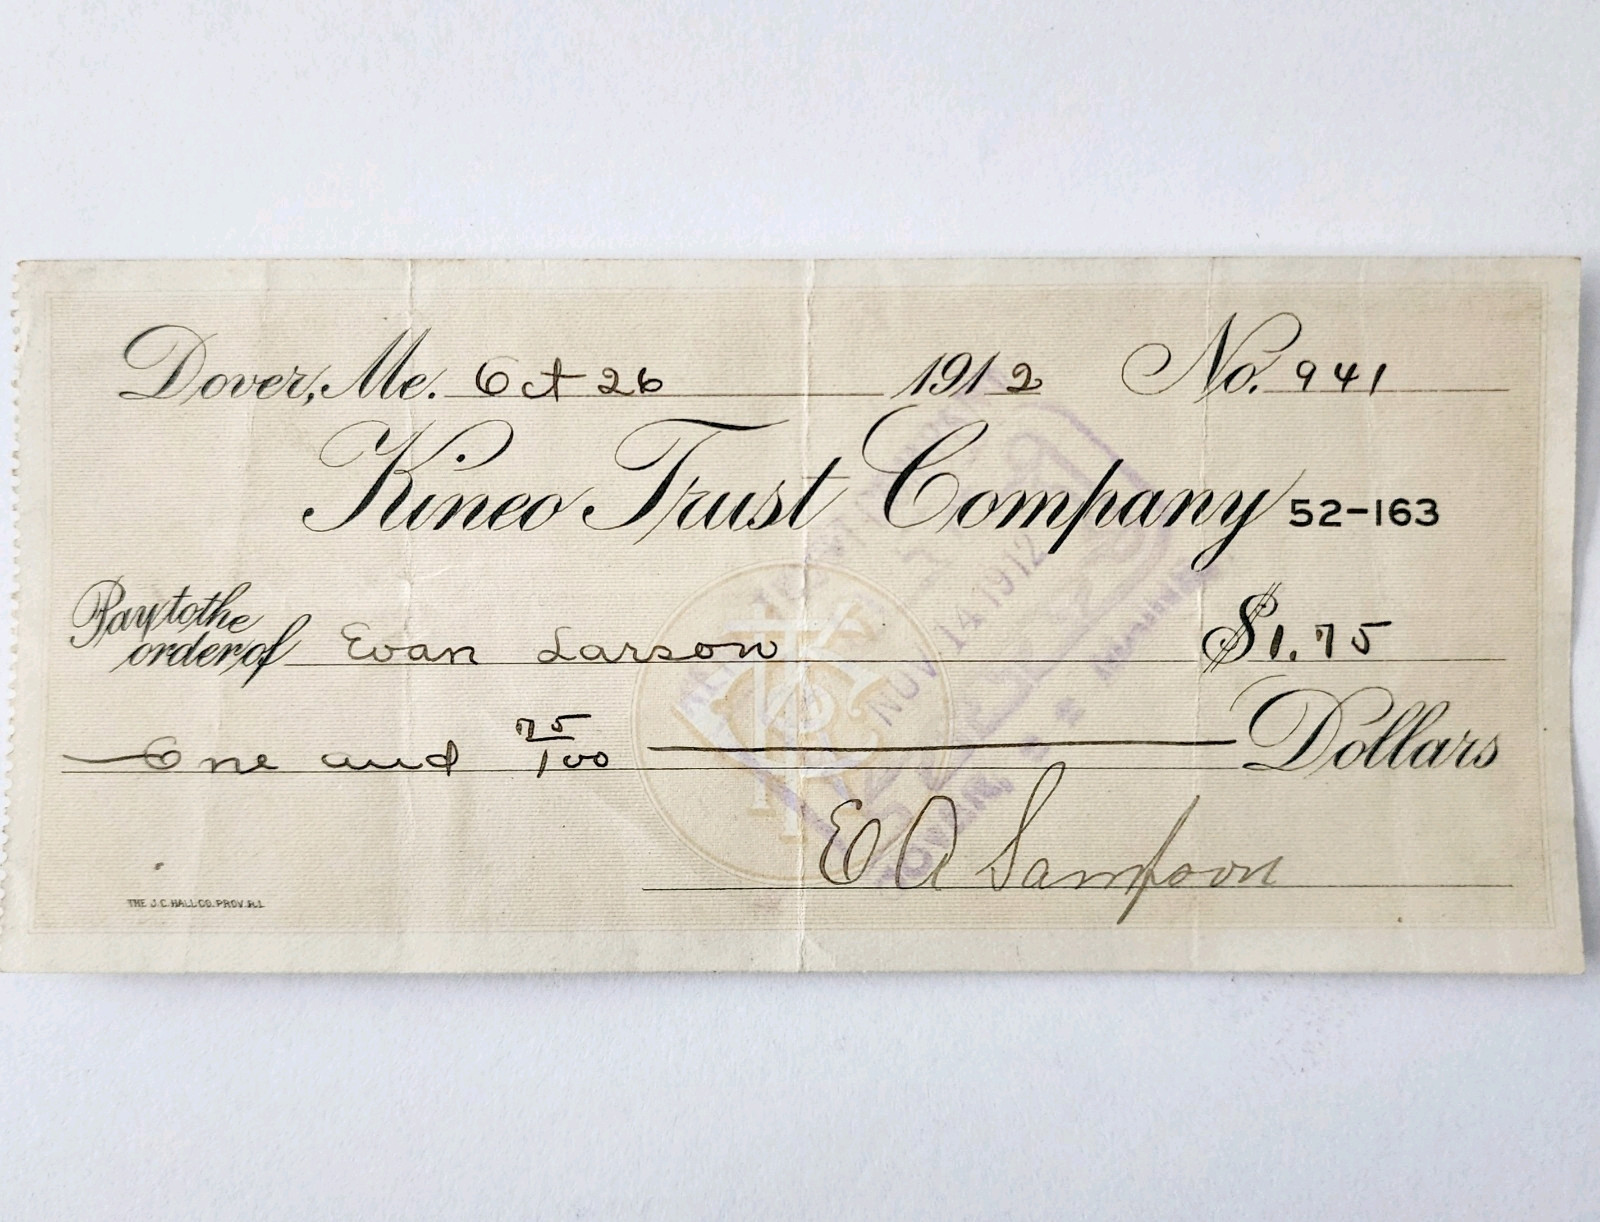 Dover, Me. Oct 26 1912 No. 941
Kineo Trust Company 52-163
Pay to the
order of Evan Larson $1.75
One and 75/100 Dollars
E A Sampson
THE J.C. HALL CO. PROV. R.I.
NOV 14 1912